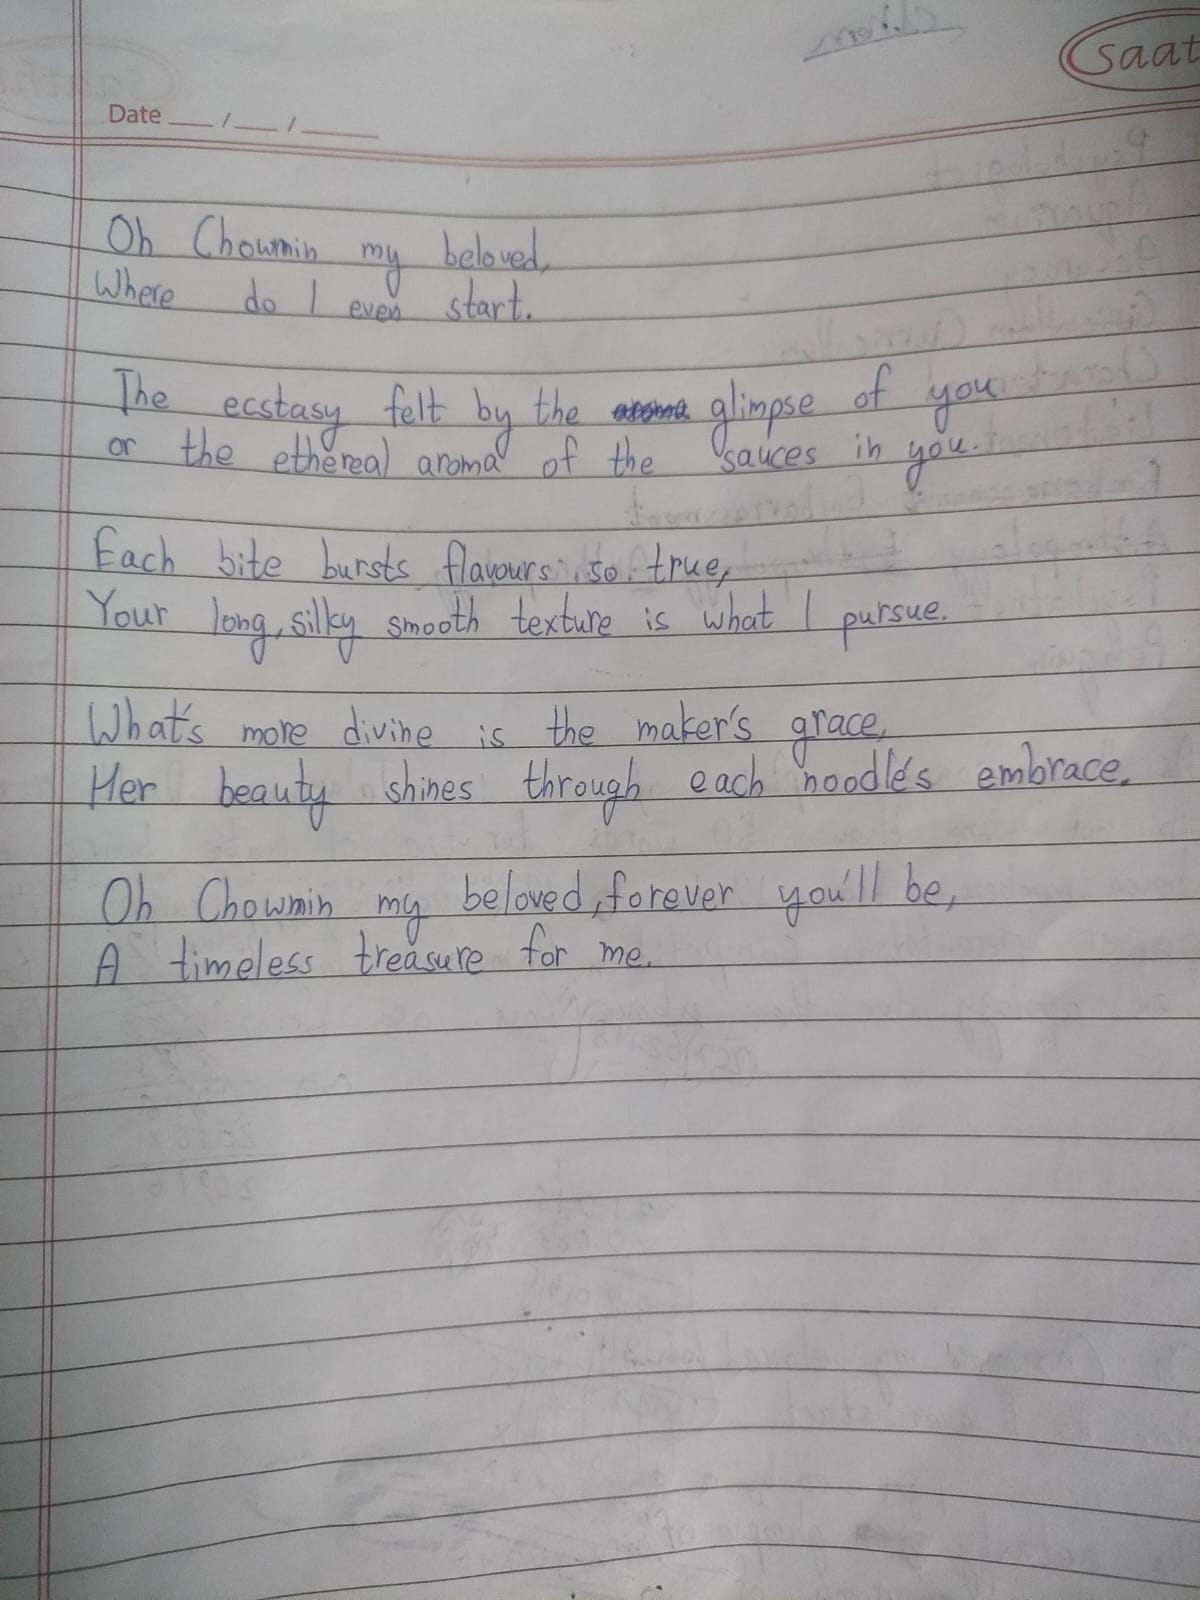 saat
Date __/__/____
Oh Chowmin my beloved,
Where do I even start.
The ecstasy felt by the glimpse of you
or the ethereal aroma of the sauces in you.
Each bite bursts flavours so true,
Your long, silky smooth texture is what I pursue.
What's more divine is the maker's grace,
Her beauty shines through each noodle's embrace.
Oh Chowmin my beloved, forever you'll be,
A timeless treasure for me.